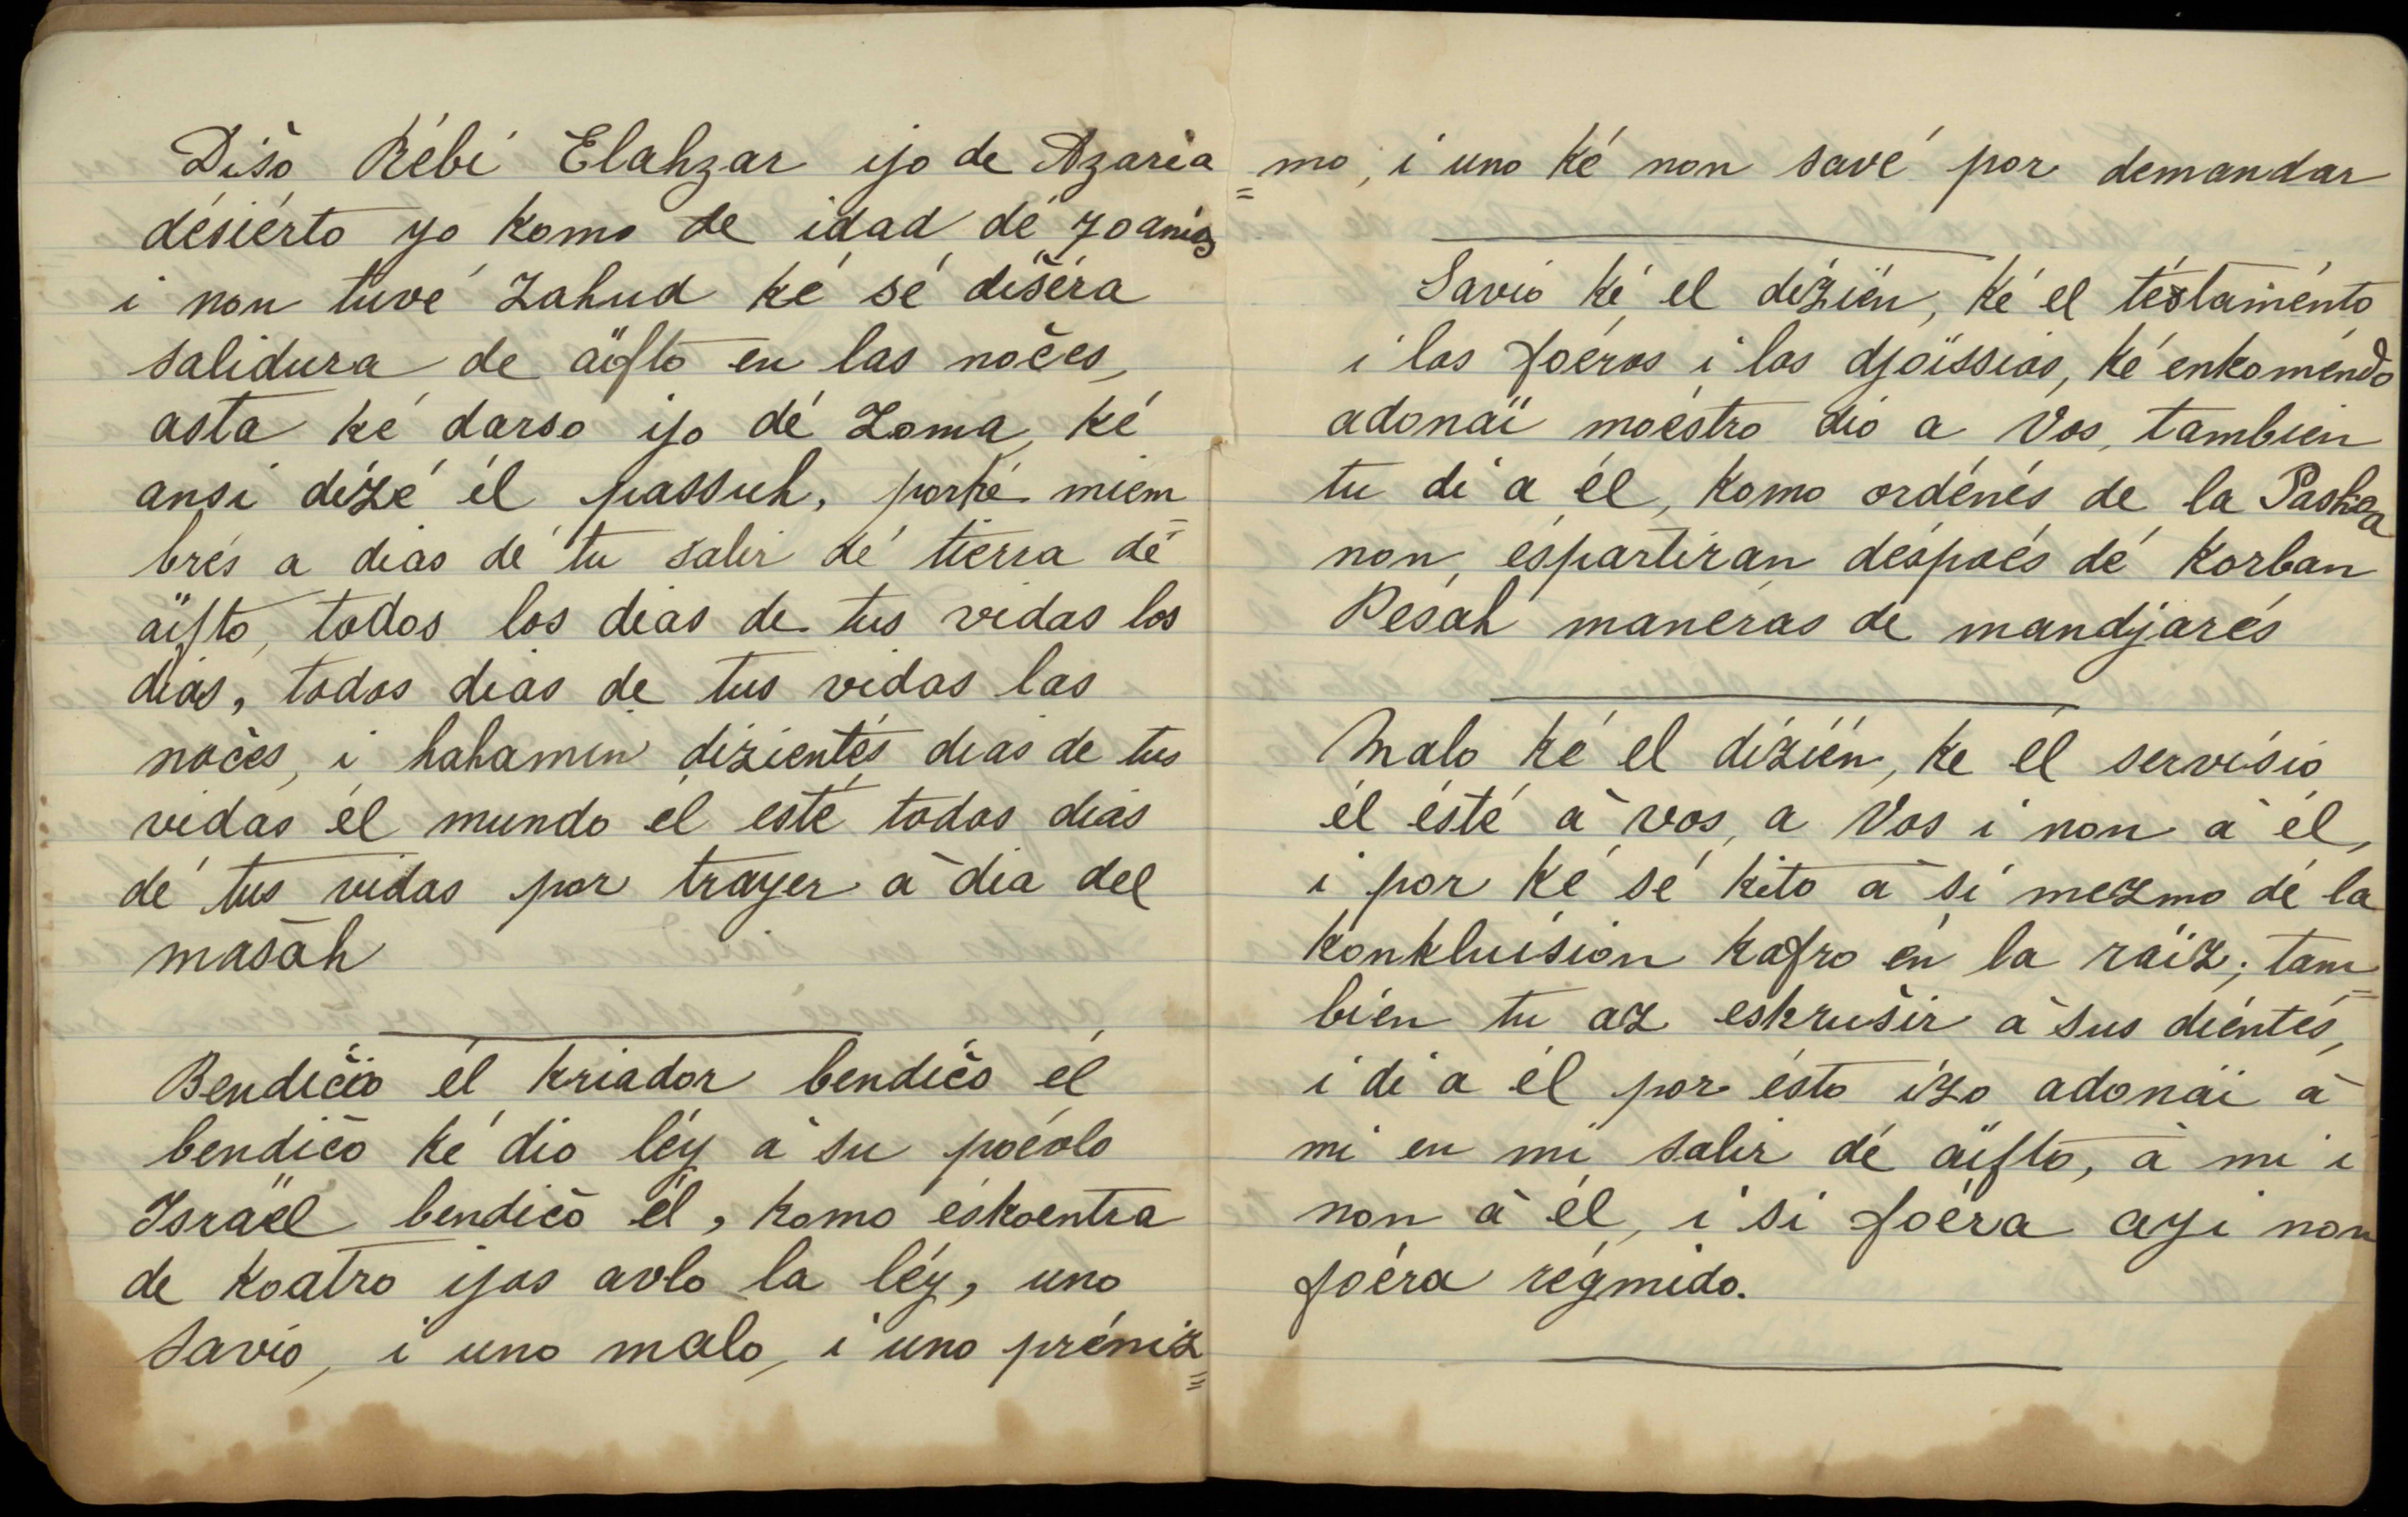 Dišo Rébi Elahzar ijo de Azaria
désiérto yo komo de idad dé 70 anios
i non tuvé zahud ké sé dišéra
salidura de aïfto en las nočes,
asta ké darso ijo dé Zoma, ké
ansi dézé él passuh, porké miem=
brés a dias dé tu salir dé tierra dé
aïfto, todos los dias de tus vidas los
dias, todos dias de tus vidas las
nočes, i hahamim dizientés dias de tus
vidas él mundo él esté todos dias
dé tus vidas por trayer à dia del
mašiah
Bendičo él kriador bendičo él
bendičo ké dio léy à su poévlo
Israël bendičo él, komo éskoentra
de koatro ijos avlo la léy, uno
savio, i uno malo, i uno préniz=
=mo, i uno ké non savé por demandar
Savio ké el dézién, ké él téstaménto
i los foéros i los djoïssios, ké enkoméndo
adonaï moéstro dio a Vos, tambien
tu di a él, komo ordénés de la Paskoa
non, éspartiran déspoés dé korban
Pesah manéras de mandjarés
Malo ké el dézién, ke él servisio
él ésté à vos, a Vos i non à él,
i por ké sé kito à si mezmo dé la
konkluision kafro én la raïz; tam=
bién tu az eskrušir à sus diéntés,
i di a él por ésto izo adonaï à
mi en mi salir dé aïfto, à mi i
non à él, i si foéra ayi non
foéra régmido.